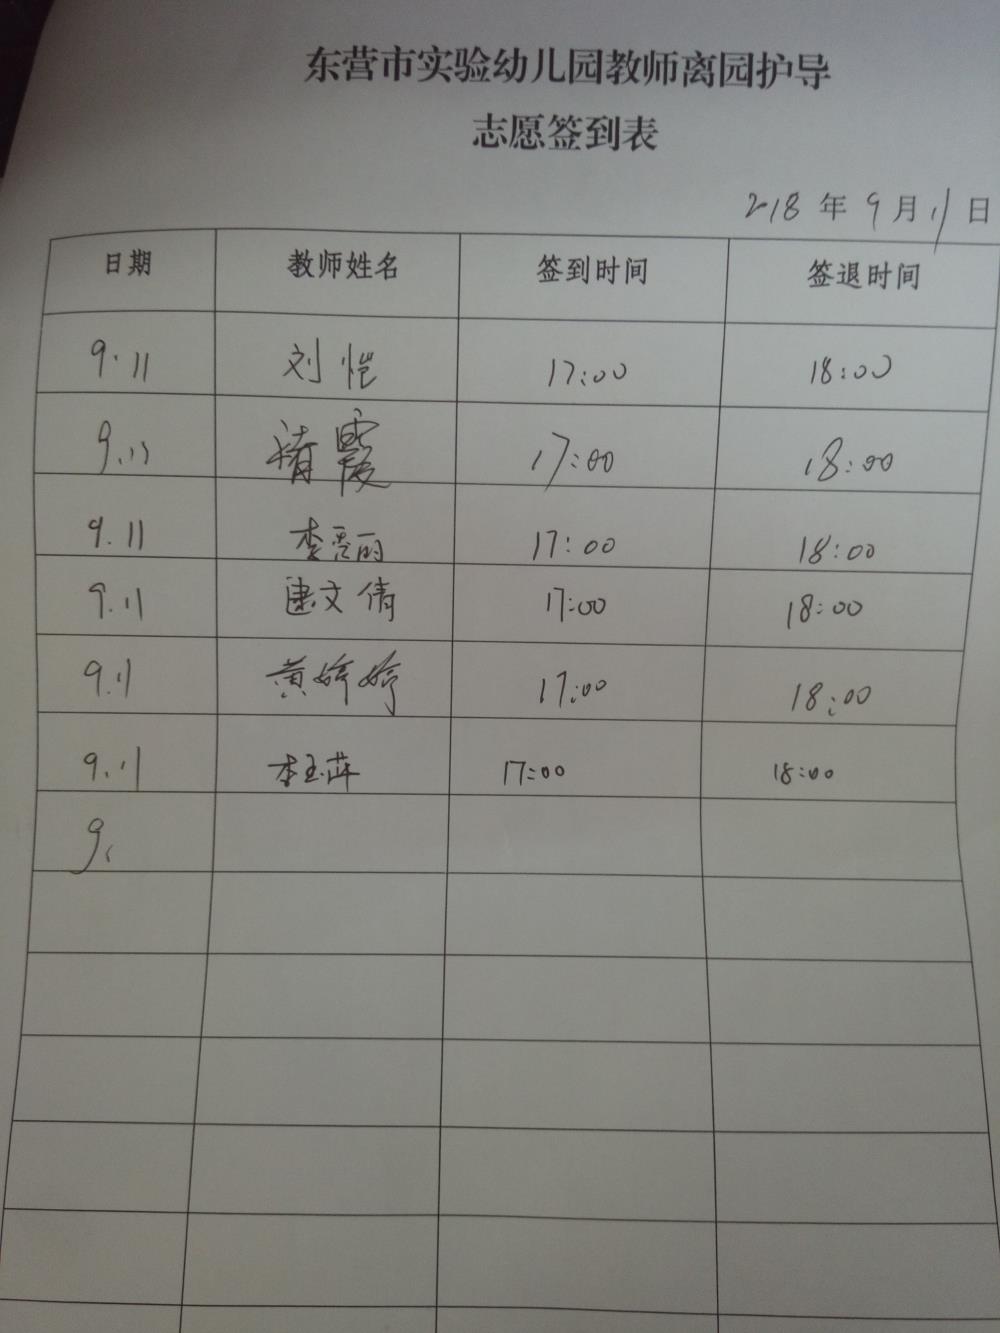 东营市实验幼儿园教师离园护导
志愿签到表
218 年 9 月 11 日
日期 教师姓名 签到时间 签退时间
9.11 刘恺 17:00 18:00
9.11 霞 17:00 18:00
9.11 李 丽 17:00 18:00
9.11 文倩 17:00 18:00
9.11 黄婷婷 17:00 18:00
9.11 李玉萍 17:00 18:00
9.